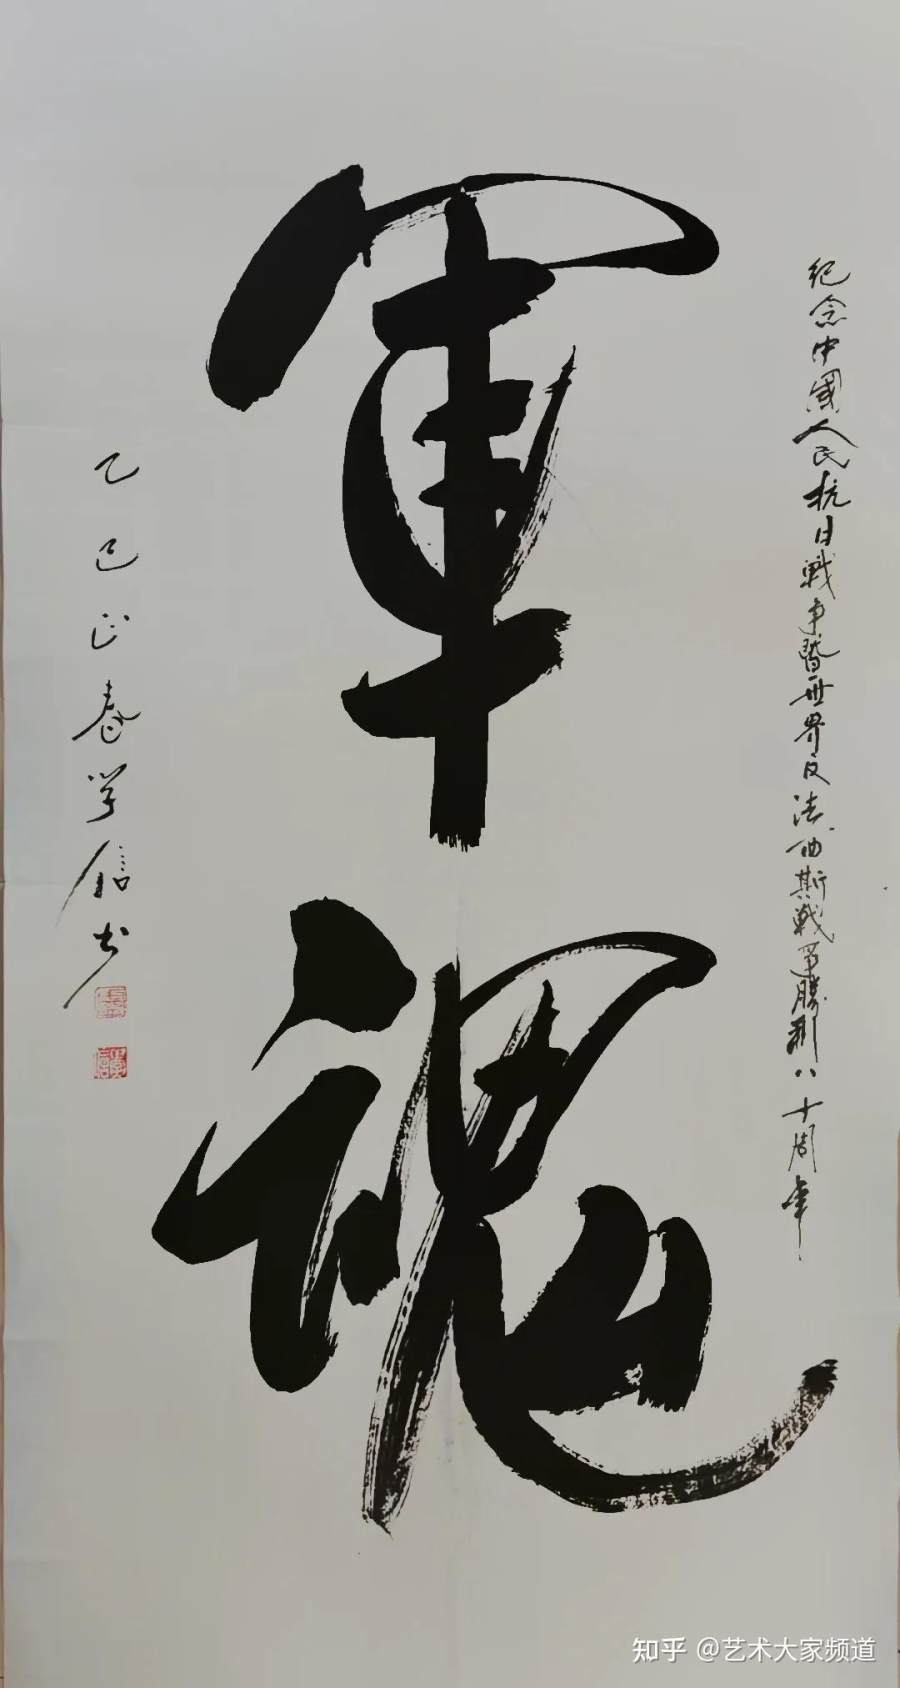 纪念中國人民抗日戰争暨世界反法西斯戰争勝利八十周年
軍魂
乙巳正春学信书
知乎 @艺术大家频道